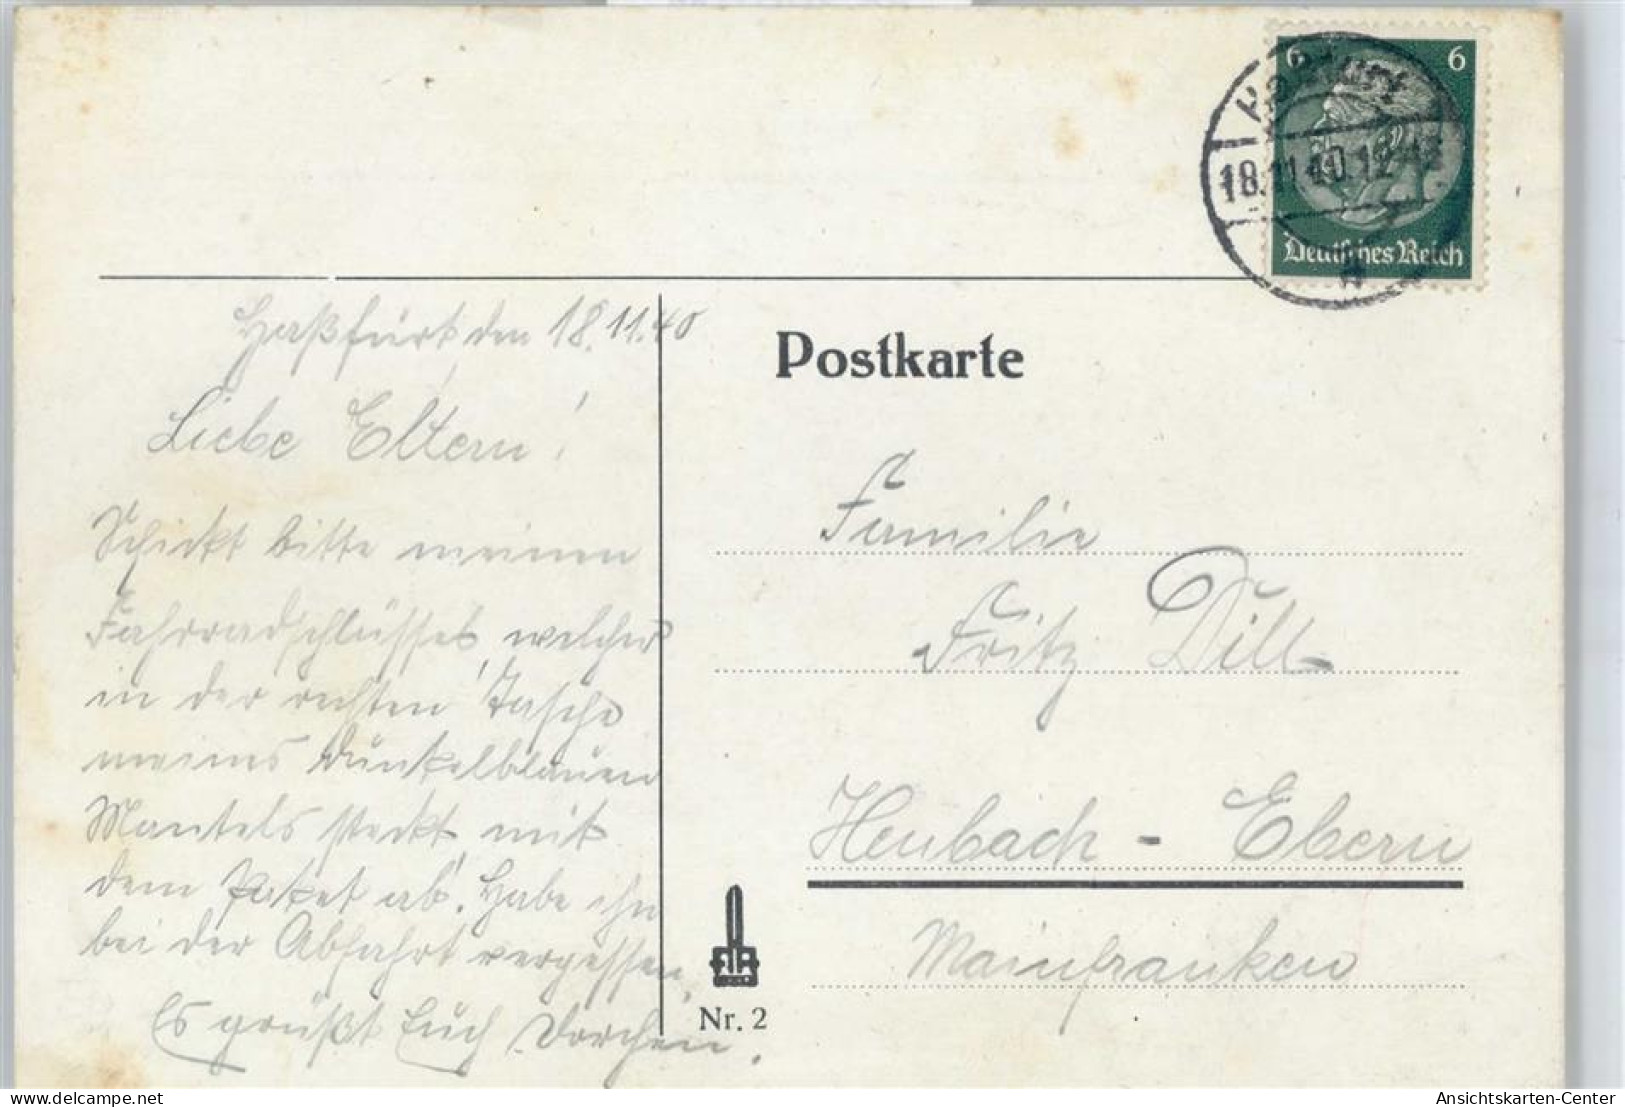 6 6
Haßfurt
18.11.40.12-13
Deutsches Reich
a
Haßfurt den 18.11.40
Liebe Eltern!
Schickt bitte meinen
Fahrradschlüssel, welcher
in der rechten Tasche
meines dunkelblauen
Mantels steckt mit
dem Paket ab. Habe ihn
bei der Abfahrt vergessen.
Es grüßt Euch Dorchen.
Postkarte
Familie
Fritz Dill
Heubach - Ebern
Mainfranken
Nr. 2
www.oldthing.de
Ansichtskarten-Center